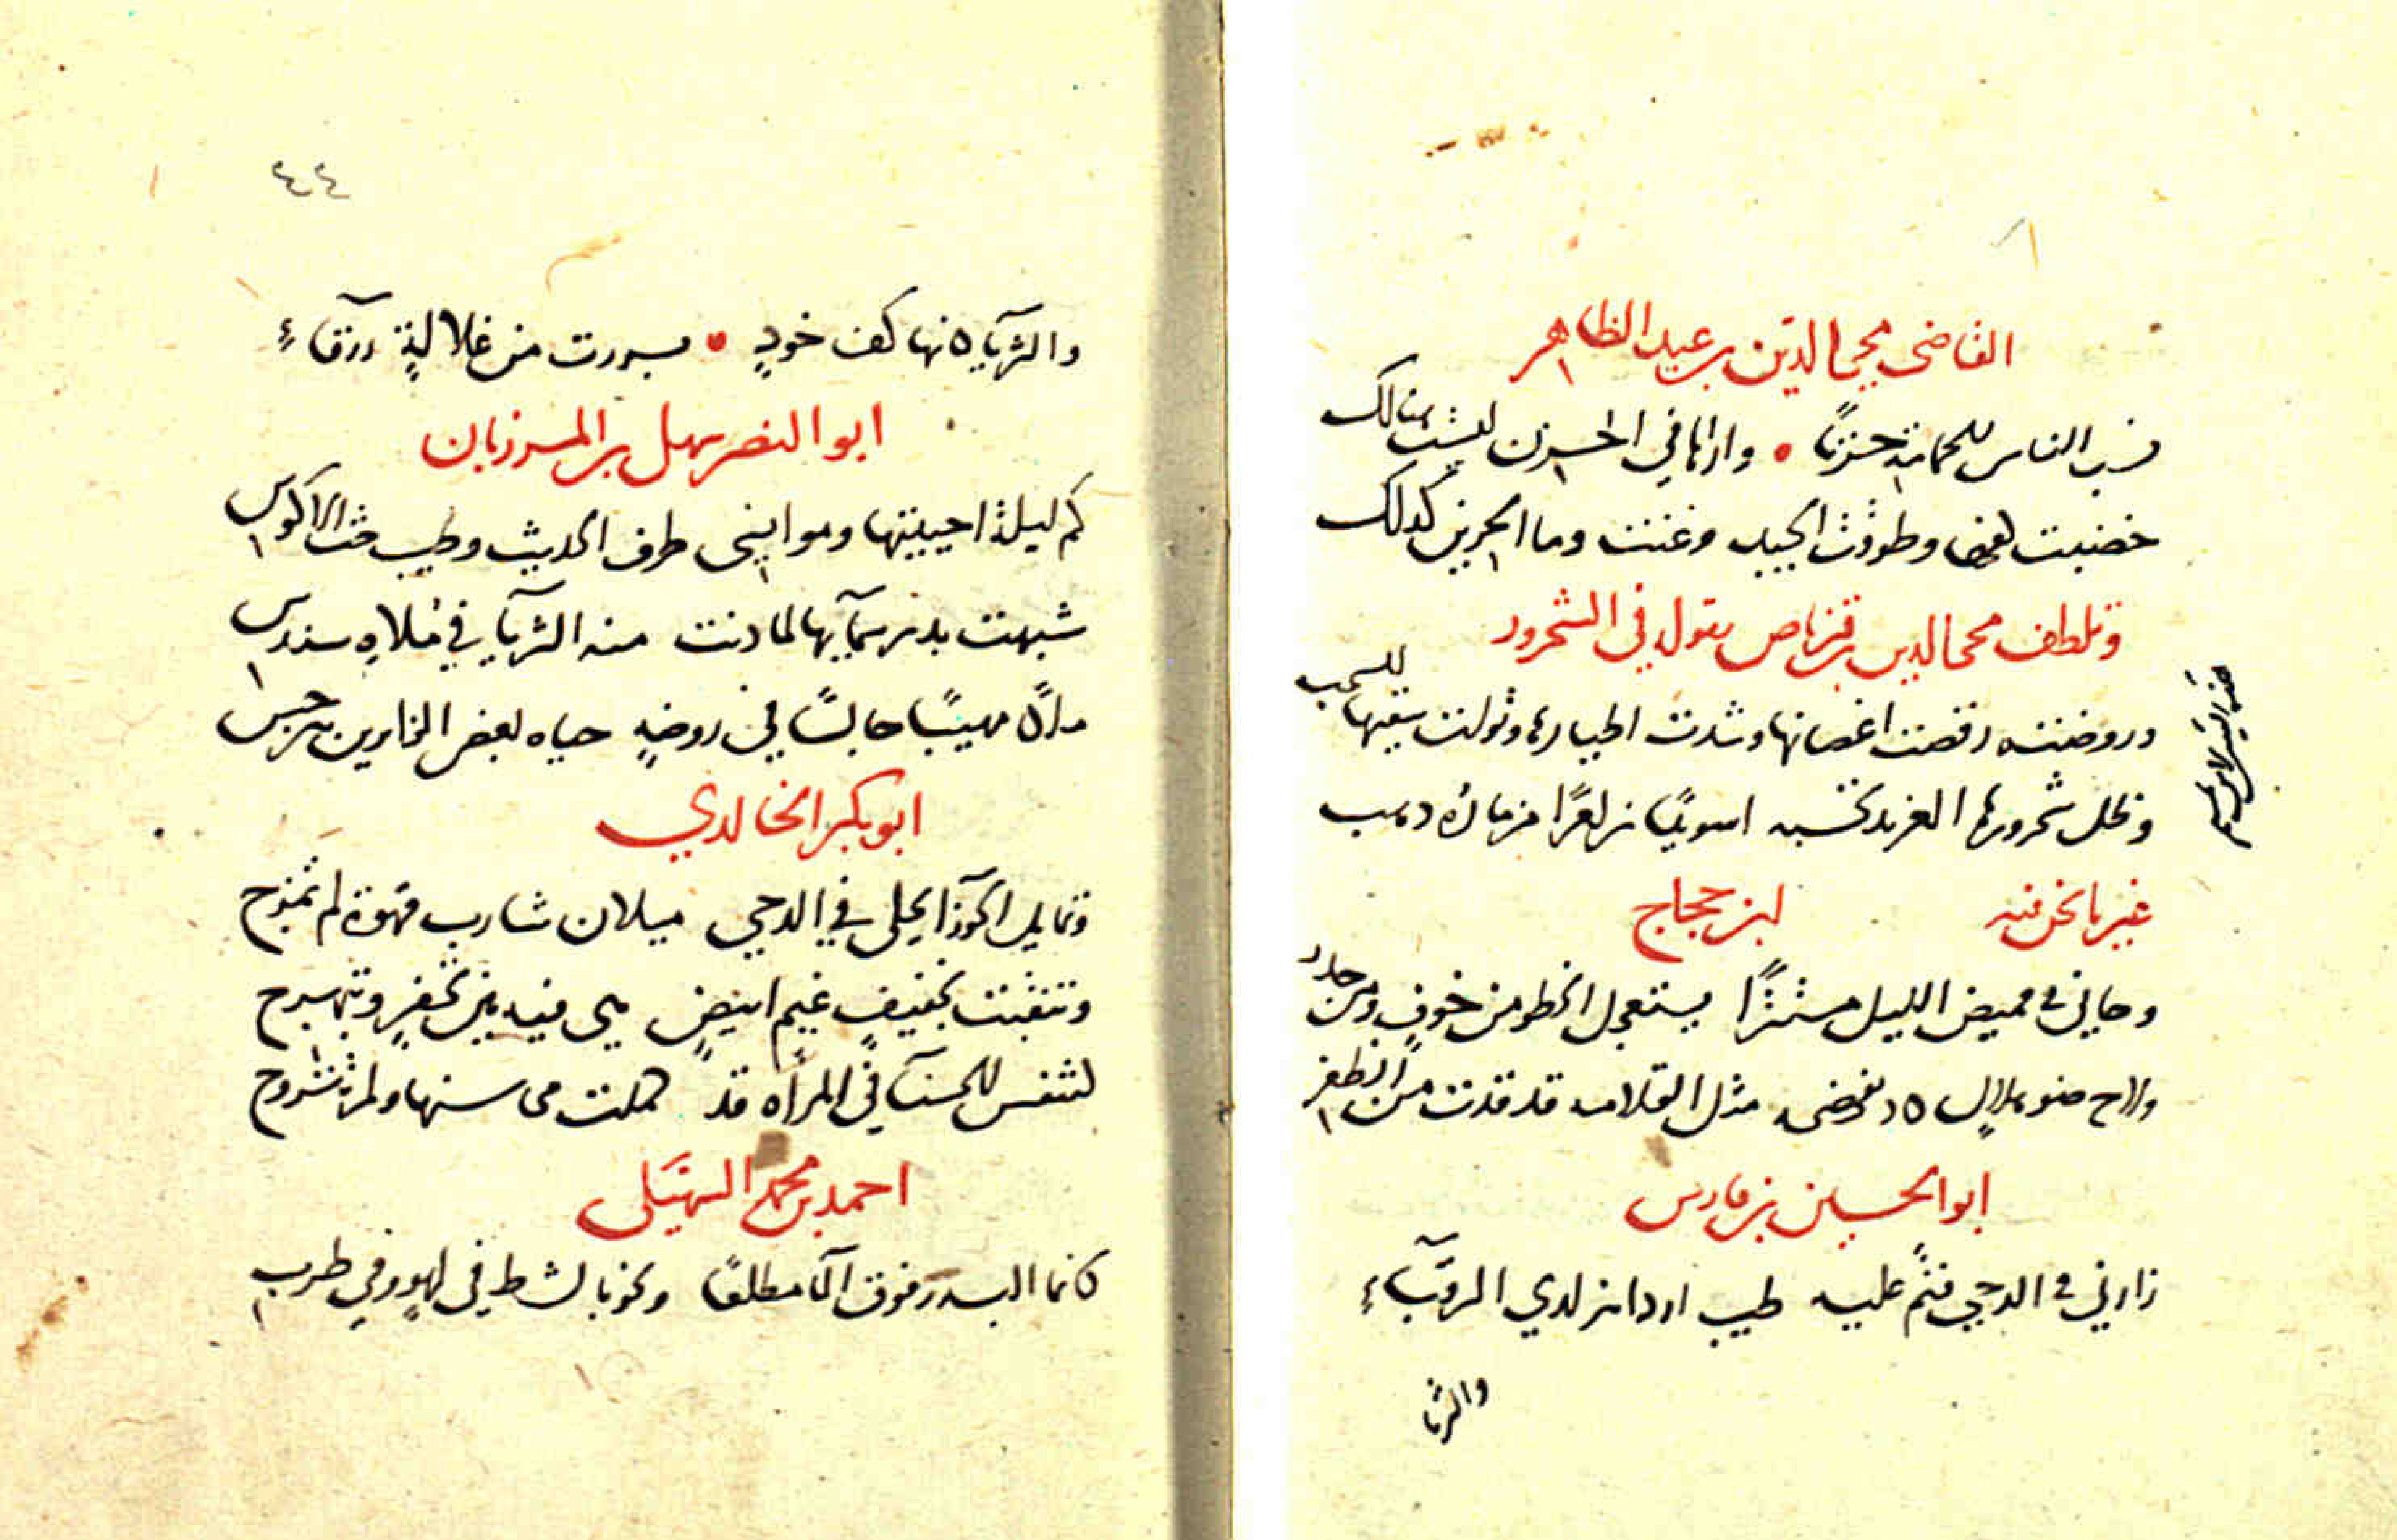 القاضى محيي الدين بن عبد الظاهر
نسب الناس للحمامة حزنًا • واراها في الحزن ليست هنالك
خضبت كفها وطوقت الجيد وغنت وما الحزين كذلك
وتلطف محي الدين بن قرناص بقوله في الشحرور
وروضته رقصت اغصانها وشدت اطيارها وتولت سقيها السحب
وظل شحرورها الغريد تحسبه اسويدًا زامرًا مزماره ذهب
غير ما نحن فيه لبن حجاج
وجاني في قميص الليل مستترًا يستعجل الخطو من خوف ومن حذر
ولاح ضو هلالٍ كاد يفضحه مثل القلامه قد قدت من الظفر
ابو الحسين بن فارس
زارني في الدجي فنمّ عليه طيب اردانه لدي الرقبآءِ
والثريا
٤٤
والثريّا كانها كف خودٍ • برزت من غلالةٍ زرقآءِ
ابو النصر سهل بن المرزبان
كم ليلة احييتها وموانسى طرف الحديث وطيب حث الاكوس
شبهت بدر سمآيها لما دنت منه الثريّا في مُلاه سندس
ملكًا مهيبًا جالسًا في روضهٍ حياه بعض الزاىرين بنرجس
ابو بكر الخالدي
وتمايل الجوزا يحكي في الدجي ميلان شارب قهوة لم تمزج
وتنقبت بخفيفٍ غيم ابيضٍ هي فيه بين تخفرٍ وتبهرج
كتنفس الحسنآ في المرآه قد كملت محاسنها ولم تتزوج
احمد بن محمد السهيلي
كانما البدر فوق المآ مطلعًا ونحن بالشط في لهوٍ وفي طرب